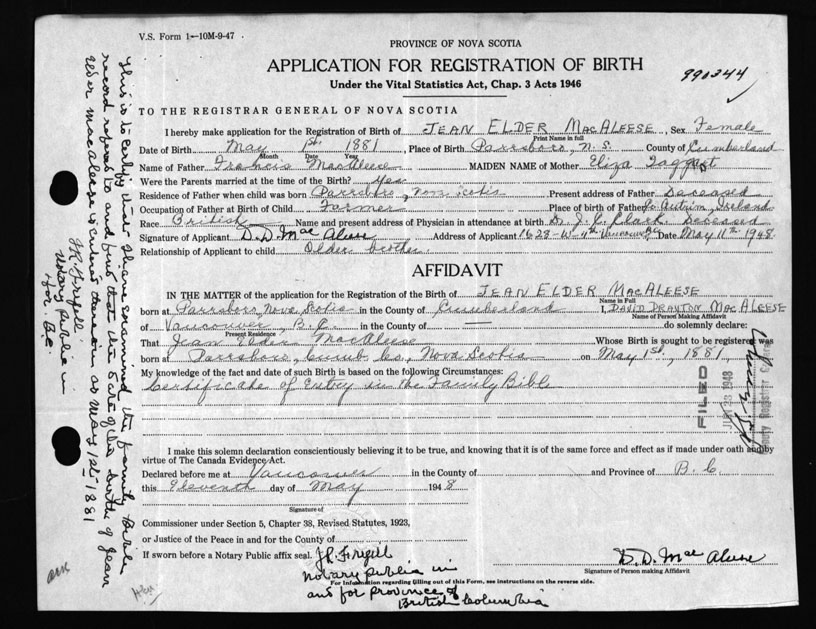 V.S. Form 1—10M-9-47
PROVINCE OF NOVA SCOTIA
APPLICATION FOR REGISTRATION OF BIRTH
990344
Under the Vital Statistics Act, Chap. 3 Acts 1946
TO THE REGISTRAR GENERAL OF NOVA SCOTIA
I hereby make application for the Registration of Birth of JEAN ELDER MACALEESE, Sex Female
Print Name in full
Date of Birth May 1st. 1881, Place of Birth Parrsboro, N.S. County of Cumberland
Month Date Year
Name of Father Francis MacAleese MAIDEN NAME of Mother Eliza Taggart
Were the Parents married at the time of Birth? Yes
Residence of Father when child was born Parrsboro, Nova Scotia Present address of Father Deceased
Occupation of Father at Birth of Child Farmer Place of birth of Father Co. Antrim, Ireland
Race British Name and present address of Physician in attendance at birth Dr. J. C. Clark Deceased
Signature of Applicant D. D. MacAleese Address of Applicant 1623-W-4th Vancouver BC Date May 11th 1948
Relationship of Applicant to child Older brother
AFFIDAVIT
IN THE MATTER of the application for the Registration of the Birth of JEAN ELDER MACALEESE
Name in Full
born at Parrsboro, Nova Scotia in the County of Cumberland I, DAVID DRAYTON MACALEESE
Name of Person Making Affidavit
of Vancouver, B.C. in the County of — do solemnly declare:
Present Residence
That Jean Elder MacAleese Whose Birth is sought to be registered was
born at Parrsboro, Cumb. Co., Nova Scotia on May 1st, 1881
My knowledge of the fact and date of such Birth is based on the following Circumstances:
Certificate of Entry in the Family Bible
I make this solemn declaration conscientiously believing it to be true, and knowing that it is of the same force and effect as if made under oath and by
virtue of The Canada Evidence Act.
Declared before me at Vancouver in the County of and Province of B.C.
this Eleventh day of May 1948
Signature of
Commissioner under Section 5, Chapter 38, Revised Statutes, 1923,
or Justice of the Peace in and for the County of
If sworn before a Notary Public affix seal.
Notary Public in
and for province of
British Columbia
D. D. MacAleese
Signature of Person making Affidavit
For Information regarding filling out of this Form, see instructions on the reverse side.
This is to certify that I have examined the family Bible
record referred to and find that the date of the birth of Jean
Elder MacAleese is entered therein as May 1st 1881
Notary Public in
for BC.
FILED
1948